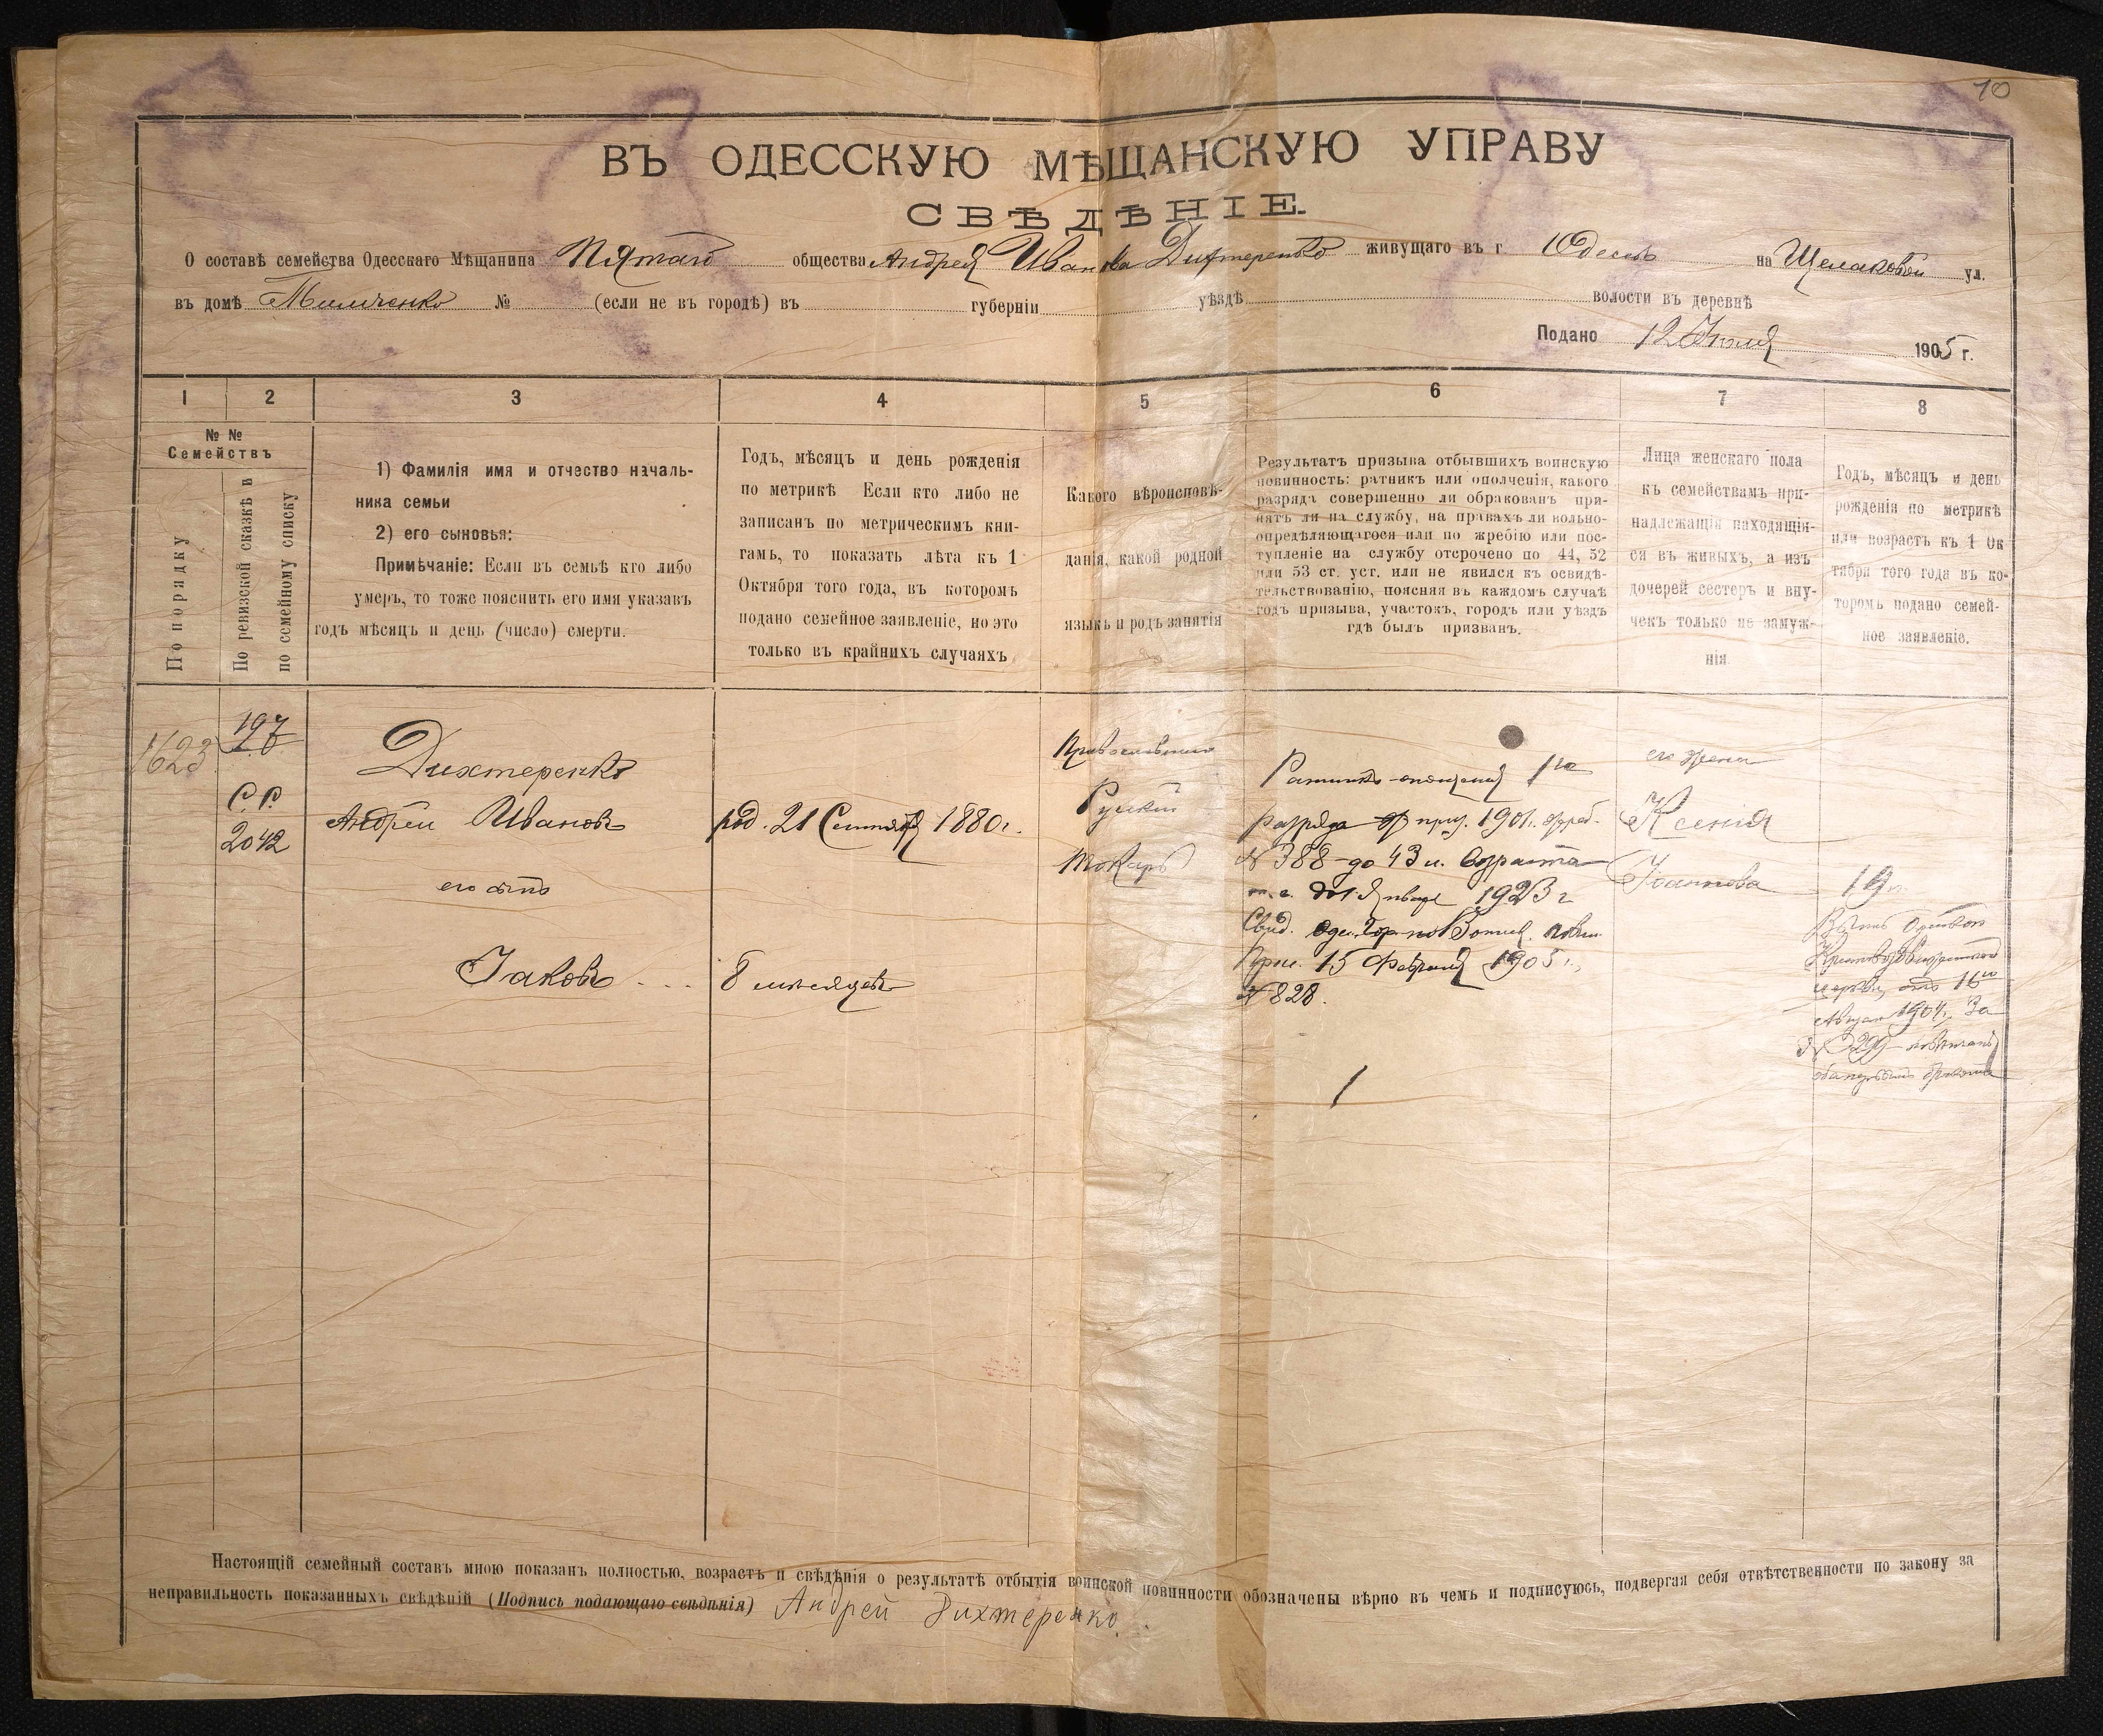 10
ВЪ ОДЕССКУЮ МѢЩАНСКУЮ УПРАВУ
СВѢДѢНІЕ.
О составѣ семейства Одесскаго Мѣщанина Пятаго общества Андрея Иванова Дихтеренко живущаго въ г Одессѣ на ул.
въ домѣ № (если не въ городѣ) въ губерніи уѣздѣ волости въ деревнѣ
Подано 12 Іюля 1905 г.
1 2 3 4 5 6 7 8
№ № Семействъ
По порядку
По ревизской сказкѣ и
по семейному списку
1) Фамилія имя и отчество началь-
ника семьи
2) его сыновья:
Примѣчаніе: Если въ семьѣ кто либо
умеръ, то тоже пояснить его имя указавъ
годъ мѣсяцъ и день (число) смерти.
Годъ, мѣсяцъ и день рожденія
по метрикѣ Если кто либо не
записанъ по метрическимъ кни-
гамъ, то показать лѣта къ 1
Октября того года, въ которомъ
подано семейное заявленіе, но это
только въ крайнихъ случаяхъ
Какого вѣроисповѣ-
данія, какой родной
языкъ и родъ занятія
Результатъ призыва отбывшихъ воинскую
повинность: ратникъ или ополченія, какого
разряда совершенно ли обракованъ при-
нятъ ли на службу, на правахъ ли вольно-
опредѣляющагося или по жребію или пос-
тупленіе на службу отсрочено по 44, 52
или 53 ст. уст. или не явился къ освидѣ-
тельствованію, поясняя въ каждомъ случаѣ
годъ призыва, участокъ, городъ или уѣздъ
гдѣ былъ призванъ.
Лица женскаго пола
къ семействамъ при-
надлежащія находящія-
ся въ живыхъ, а изъ
дочерей сестеръ и вну-
чекъ только не замуж-
нія.
Годъ, мѣсяцъ и день
рожденія по метрикѣ
или возрастъ къ 1 Ок
тября того года въ ко-
торомъ подано семей-
ное заявленіе.
1623
197
С. С.
2042
Дихтеренко
Андрей Ивановъ
его сынъ
Іаковъ
род. 21 Сентября 1880 г.
8 мѣсяцевъ
Православный
Русскій
Токарь
Ратникъ ополченія 1го
разряда приз. 1901 г. жреб.
№ 388 до 43 л. возраста
т. е. до 1 Января 1923 г
Свид. Одес. Гор. по Воинск. повин.
Прис. 15 Февраля 1905 г.
№ 828.
1
его жена
Ксенія
Іоаннова
19 л.
церкви отъ 16го
1904 г. за
№ 299
Настоящій семейный составъ мною показанъ полностью, возрастъ и свѣдѣнія о результатѣ отбытія воинской повинности обозначены вѣрно въ чемъ и подписуюсь, подвергая себя отвѣтственности по закону за
неправильность показанныхъ свѣдѣній (Подпись подающаго свѣдѣнія) Андрей Дихтеренко.